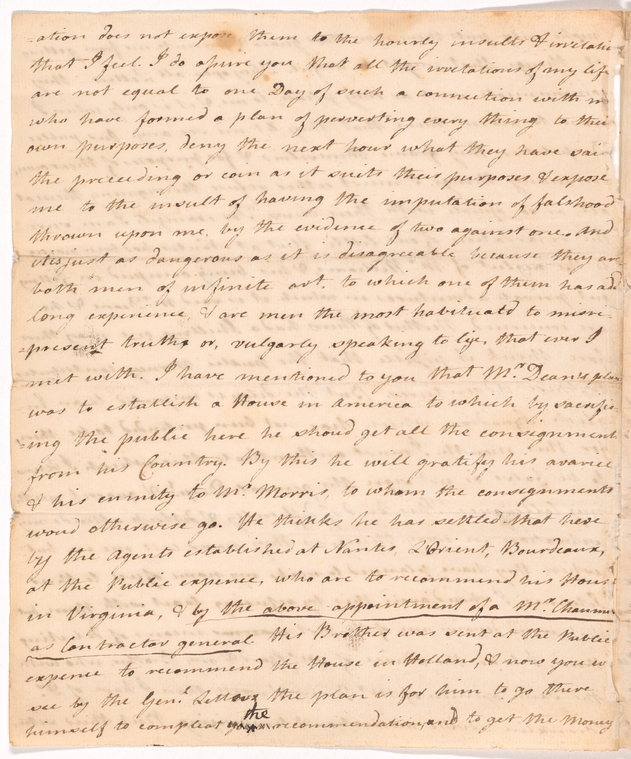 -ation does not expose them to the hourly insults & irritatio
that I feel. I do assure you that all the irretations of my life
are not equal to one Day of such a connection with m
who have formed a plan of perverting every thing to their
own purposes, deny the next hour what they have sai
the preceeding or coin as it suits their purposes & expose
me to the insult of having the imputation of falshood
thrown upon me, by the evidence of two against one. And
itis just as dangerous as it is disagreeable because they are
both men of infinite art, to which one of them has add
long experience, & are men the most habituated to misre-
-present truth, or, vulgarly speaking to lye, that ever I
met with. I have mentioned to you that Mr. Dean's plan
was to establish a House in America to which by sacrific-
-ing the public here he shoud get all the consignment
from his Country. By this he will gratify his avarice
& his enmity to Mr. Morris, to whom the consignments
woud otherwise go. He thinks he has settled that here
by the Agents established at Nantes, L'Orient, Bourdeaux,
at the Public expence, who are to recommend his House
in Virginia, & by the above appointment of a Mr. Chaum
as Contractor general. His Brother was sent at the Public
expence to recommend the House in Holland, & now you w
see by the Genl. Letter the plan is for him to go there
himself to compleat the recommendation, and to get the Money